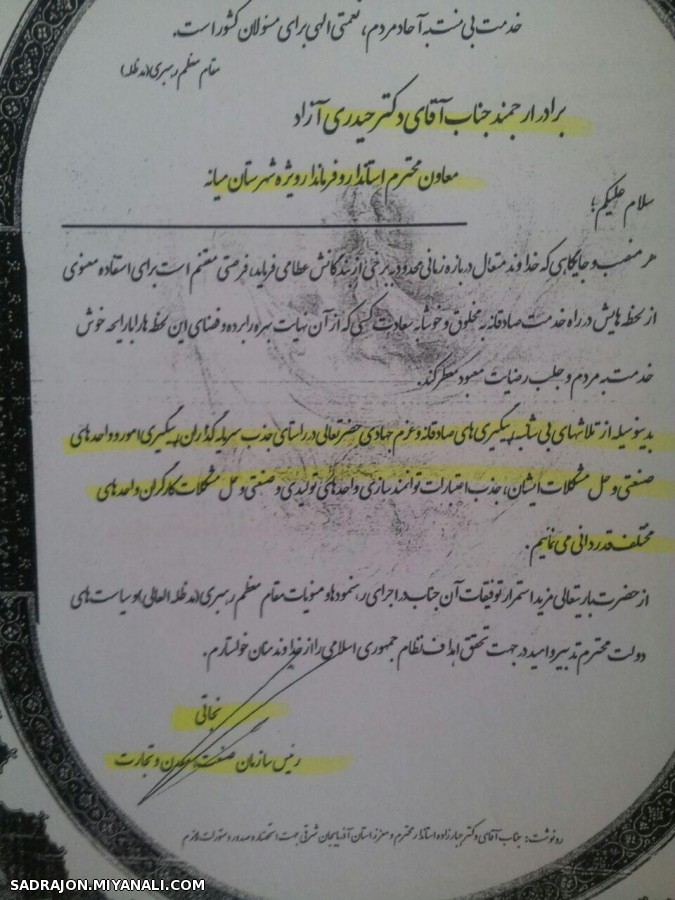 خدمت بی منت به آحاد مردم، نعمتی الهی برای مسئولان کشور است.
مقام معظم رهبری(مدظله)
برادر ارجمند جناب آقای دکتر حیدری آزاد
معاون محترم استاندار و فرماندار ویژه شهرستان میانه
سلام علیکم؛
هر منصب و جایگاهی که خداوند متعال در بازه زمانی محدود به برخی از بندگانش عطا می فرماید، فرصتی مغتنم است برای استفاده معنوی
از لحظه هایش در راه خدمت صادقانه به مخلوق و خوشا به سعادت کسی که از آن نهایت بهره را برده و فضای این لحظه ها را با رایحه خوش
خدمت به مردم و جلب رضایت معبود معطر کند.
بدینوسیله از تلاشهای بی شائبه، پیگیری های صادقانه و عزم جهادی حضرتعالی در راستای جذب سرمایه گذاران، پیگیری امور واحدهای
صنعتی و حل مشکلات ایشان، جذب اعتبارات توانمندسازی واحدهای تولیدی و صنعتی و حل مشکلات کارگران واحدهای
مختلف قدردانی می نمایم.
از حضرت باریتعالی مزید استمرار توفیقات آن جناب در اجرای رهنمودها و منویات مقام معظم رهبری(مدظله العالی) و سیاست های
دولت محترم تدبیر و امید در جهت تحقق اهداف نظام جمهوری اسلامی را از خداوند منان خواستارم.
نجاتی
رئیس سازمان صنعت، معدن و تجارت
رونوشت: جناب آقای دکتر جبارزاده استاندار محترم و معزز استان آذربایجان شرقی جهت استحضار و صدور دستورات لازم
SADRAJON.MIYANALI.COM